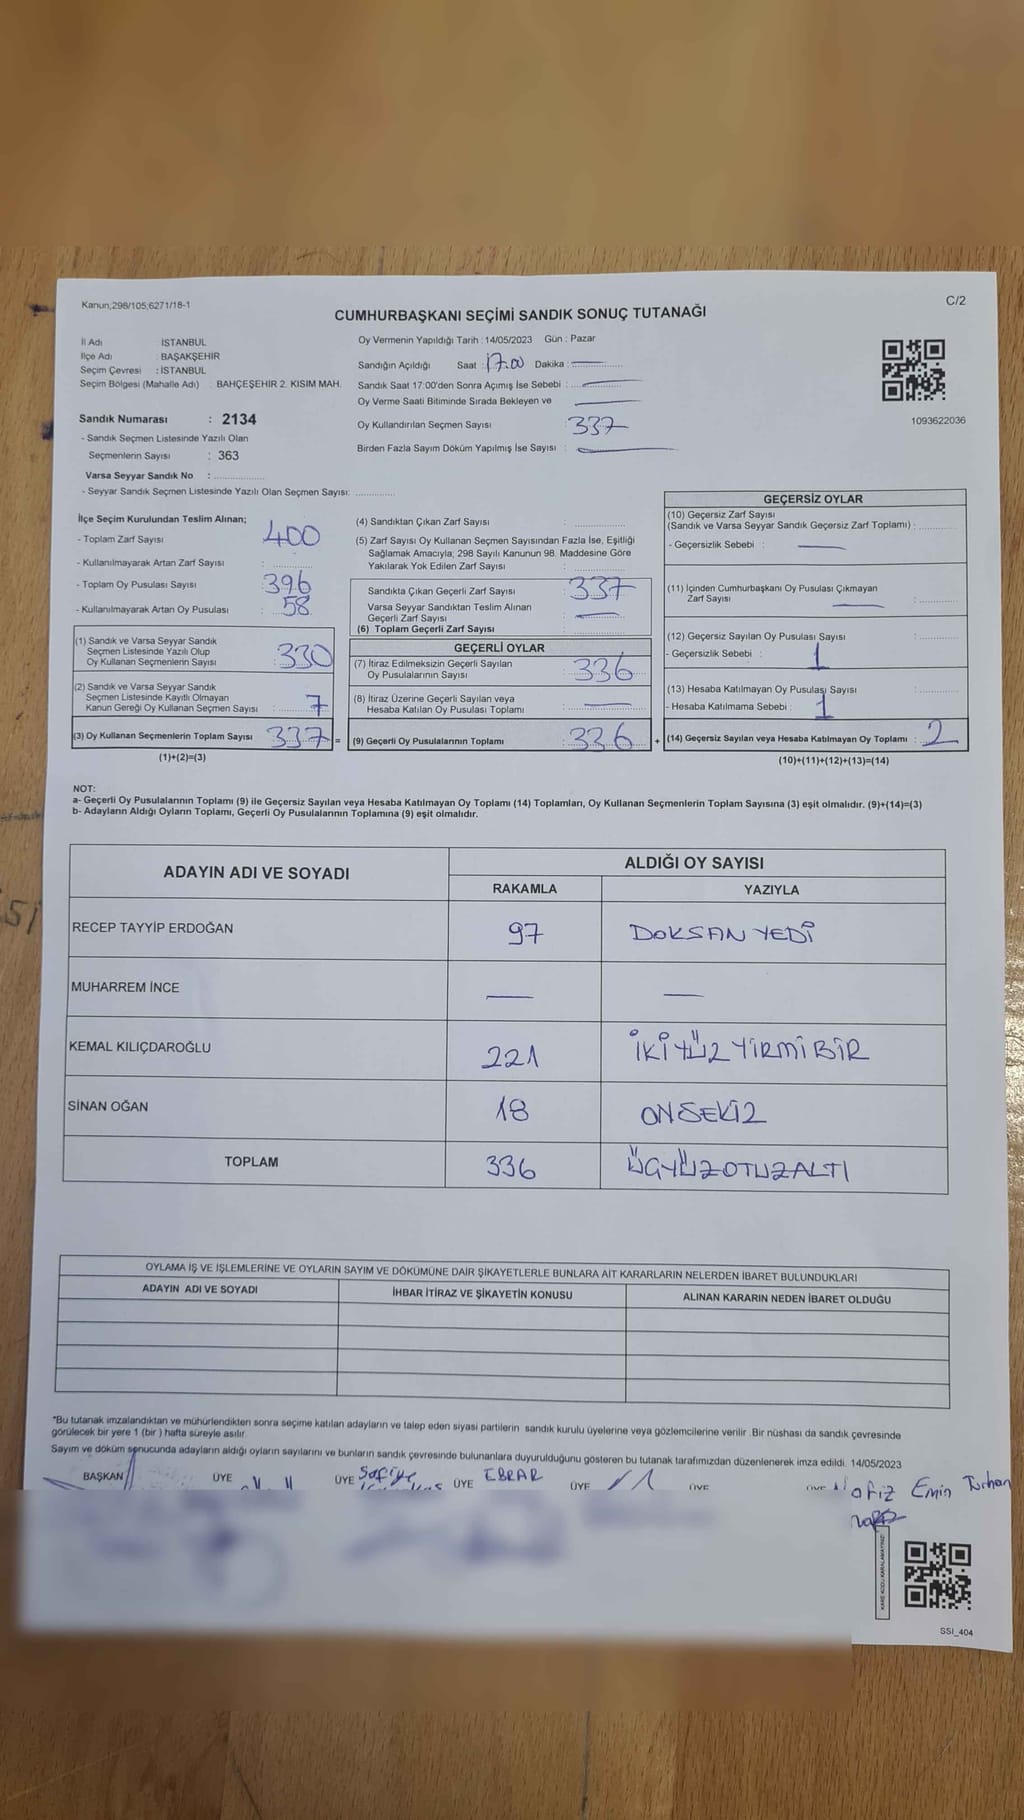 Kanun;298/105;6271/18-1
C/2
CUMHURBAŞKANI SEÇİMİ SANDIK SONUÇ TUTANAĞI
İl Adı İSTANBUL
İlçe Adı : BAŞAKŞEHİR
Seçim Çevresi : İSTANBUL
Seçim Bölgesi (Mahalle Adı) : BAHÇEŞEHİR 2. KISIM MAH.
Sandık Numarası : 2134
- Sandık Seçmen Listesinde Yazılı Olan
Seçmenlerin Sayısı : 363
Varsa Seyyar Sandık No : ..................
- Seyyar Sandık Seçmen Listesinde Yazılı Olan Seçmen Sayısı: ..............
Oy Vermenin Yapıldığı Tarih : 14/05/2023 Gün : Pazar
Sandığın Açıldığı Saat : 17.00 Dakika : —
Sandık Saat 17:00'den Sonra Açımış İse Sebebi : —
Oy Verme Saati Bitiminde Sırada Bekleyen ve —
Oy Kullandırılan Seçmen Sayısı : 337
Birden Fazla Sayım Döküm Yapılmış İse Sayısı : —
1093622036
İlçe Seçim Kurulundan Teslim Alınan;
- Toplam Zarf Sayısı 400
- Kullanılmayarak Artan Zarf Sayısı : ..............
- Toplam Oy Pusulası Sayısı : 396
- Kullanılmayarak Artan Oy Pusulası : 58
(1) Sandık ve Varsa Seyyar Sandık
Seçmen Listesinde Yazılı Olup
Oy Kullanan Seçmenlerin Sayısı : 330
(2) Sandık ve Varsa Seyyar Sandık
Seçmen Listesinde Kayıtlı Olmayan
Kanun Gereği Oy Kullanan Seçmen Sayısı : 7
(3) Oy Kullanan Seçmenlerin Toplam Sayısı : 337 =
(1)+(2)=(3)
(4) Sandıktan Çıkan Zarf Sayısı : ..............
(5) Zarf Sayısı Oy Kullanan Seçmen Sayısından Fazla İse, Eşitliği
Sağlamak Amacıyla; 298 Sayılı Kanunun 98. Maddesine Göre
Yakılarak Yok Edilen Zarf Sayısı : ..............
Sandıkta Çıkan Geçerli Zarf Sayısı : 337
Varsa Seyyar Sandıktan Teslim Alınan
Geçerli Zarf Sayısı : —
(6) Toplam Geçerli Zarf Sayısı : ..............
GEÇERLİ OYLAR
(7) İtiraz Edilmeksizin Geçerli Sayılan
Oy Pusulalarının Sayısı : 336
(8) İtiraz Üzerine Geçerli Sayılan veya
Hesaba Katılan Oy Pusulası Toplamı : —
(9) Geçerli Oy Pusulalarının Toplamı : 336 +
GEÇERSİZ OYLAR
(10) Geçersiz Zarf Sayısı
(Sandık ve Varsa Seyyar Sandık Geçersiz Zarf Toplamı) : ..............
- Geçersizlik Sebebi : —
(11) İçinden Cumhurbaşkanı Oy Pusulası Çıkmayan
Zarf Sayısı — : ..............
(12) Geçersiz Sayılan Oy Pusulası Sayısı : ..............
- Geçersizlik Sebebi : 1
(13) Hesaba Katılmayan Oy Pusulası Sayısı : ..............
- Hesaba Katılmama Sebebi : 1
(14) Geçersiz Sayılan veya Hesaba Katılmayan Oy Toplamı : 2
(10)+(11)+(12)+(13)=(14)
NOT:
a- Geçerli Oy Pusulalarının Toplamı (9) ile Geçersiz Sayılan veya Hesaba Katılmayan Oy Toplamı (14) Toplamları, Oy Kullanan Seçmenlerin Toplam Sayısına (3) eşit olmalıdır. (9)+(14)=(3)
b- Adayların Aldığı Oyların Toplamı, Geçerli Oy Pusulalarının Toplamına (9) eşit olmalıdır.
ADAYIN ADI VE SOYADI ALDIĞI OY SAYISI
RAKAMLA YAZIYLA
RECEP TAYYİP ERDOĞAN 97 DOKSAN YEDİ
MUHARREM İNCE — —
KEMAL KILIÇDAROĞLU 221 İKİ YÜZ YİRMİ BİR
SİNAN OĞAN 18 ONSEKİZ
TOPLAM 336 ÜÇYÜZOTUZALTI
OYLAMA İŞ VE İŞLEMLERİNE VE OYLARIN SAYIM VE DÖKÜMÜNE DAİR ŞİKAYETLERLE BUNLARA AİT KARARLARIN NELERDEN İBARET BULUNDUKLARI
ADAYIN ADI VE SOYADI İHBAR İTİRAZ VE ŞİKAYETİN KONUSU ALINAN KARARIN NEDEN İBARET OLDUĞU
*Bu tutanak imzalandıktan ve mühürlendikten sonra seçime katılan adayların ve talep eden siyasi partilerin sandık kurulu üyelerine veya gözlemcilerine verilir. Bir nüshası da sandık çevresinde
görülecek bir yere 1 (bir ) hafta süreyle asılır.
Sayım ve döküm sonucunda adayların aldığı oyların sayılarını ve bunların sandık çevresinde bulunanlara duyurulduğunu gösteren bu tutanak tarafımızdan düzenlenerek imza edildi. 14/05/2023
BAŞKAN ÜYE ÜYE Safiye ÜYE EBRAR ÜYE ÜYE ÜYE Hafiz Emin Turhan
KARE KODU KARALAMAYINIZ!
SSI_404